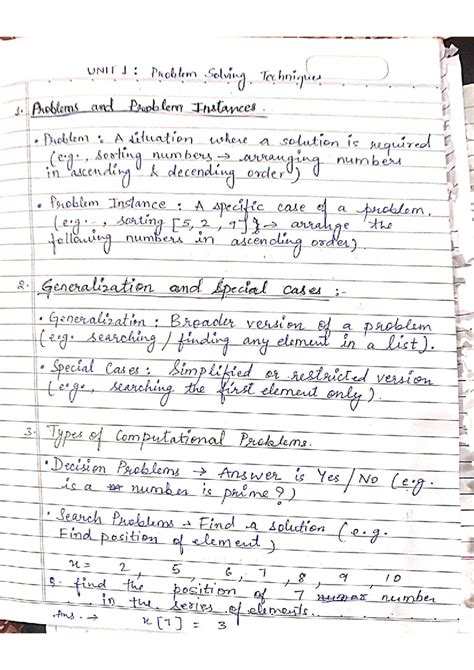 UNIT 1 : Problem Solving Techniques
1. Problems and Problem Instances.
• Problem : A situation where a solution is required
(eg., sorting numbers → arranging numbers
in ascending & decending order)
• Problem Instance : A specific case of a problem.
(e.g.., sorting [5, 2, 7]} → arrange the
following numbers in ascending order).
2. Generalization and Special cases :-
• Generalization : Broader version of a problem
(e.g. searching / finding any element in a list).
• Special Cases : Simplified or restricted version
(e.ge., searching the first element only).
3. Types of Computational Problems.
• Decision Problems → Answer is Yes / No (e.g.
is a number is prime ?)
• Search Problems → Find a solution (e.g.
Find position of element)
x = 2, 5, 6, 7, 8, 9, 10
Q. find the position of 7 number
in the series of elements.
Ans. → x[7] = 3